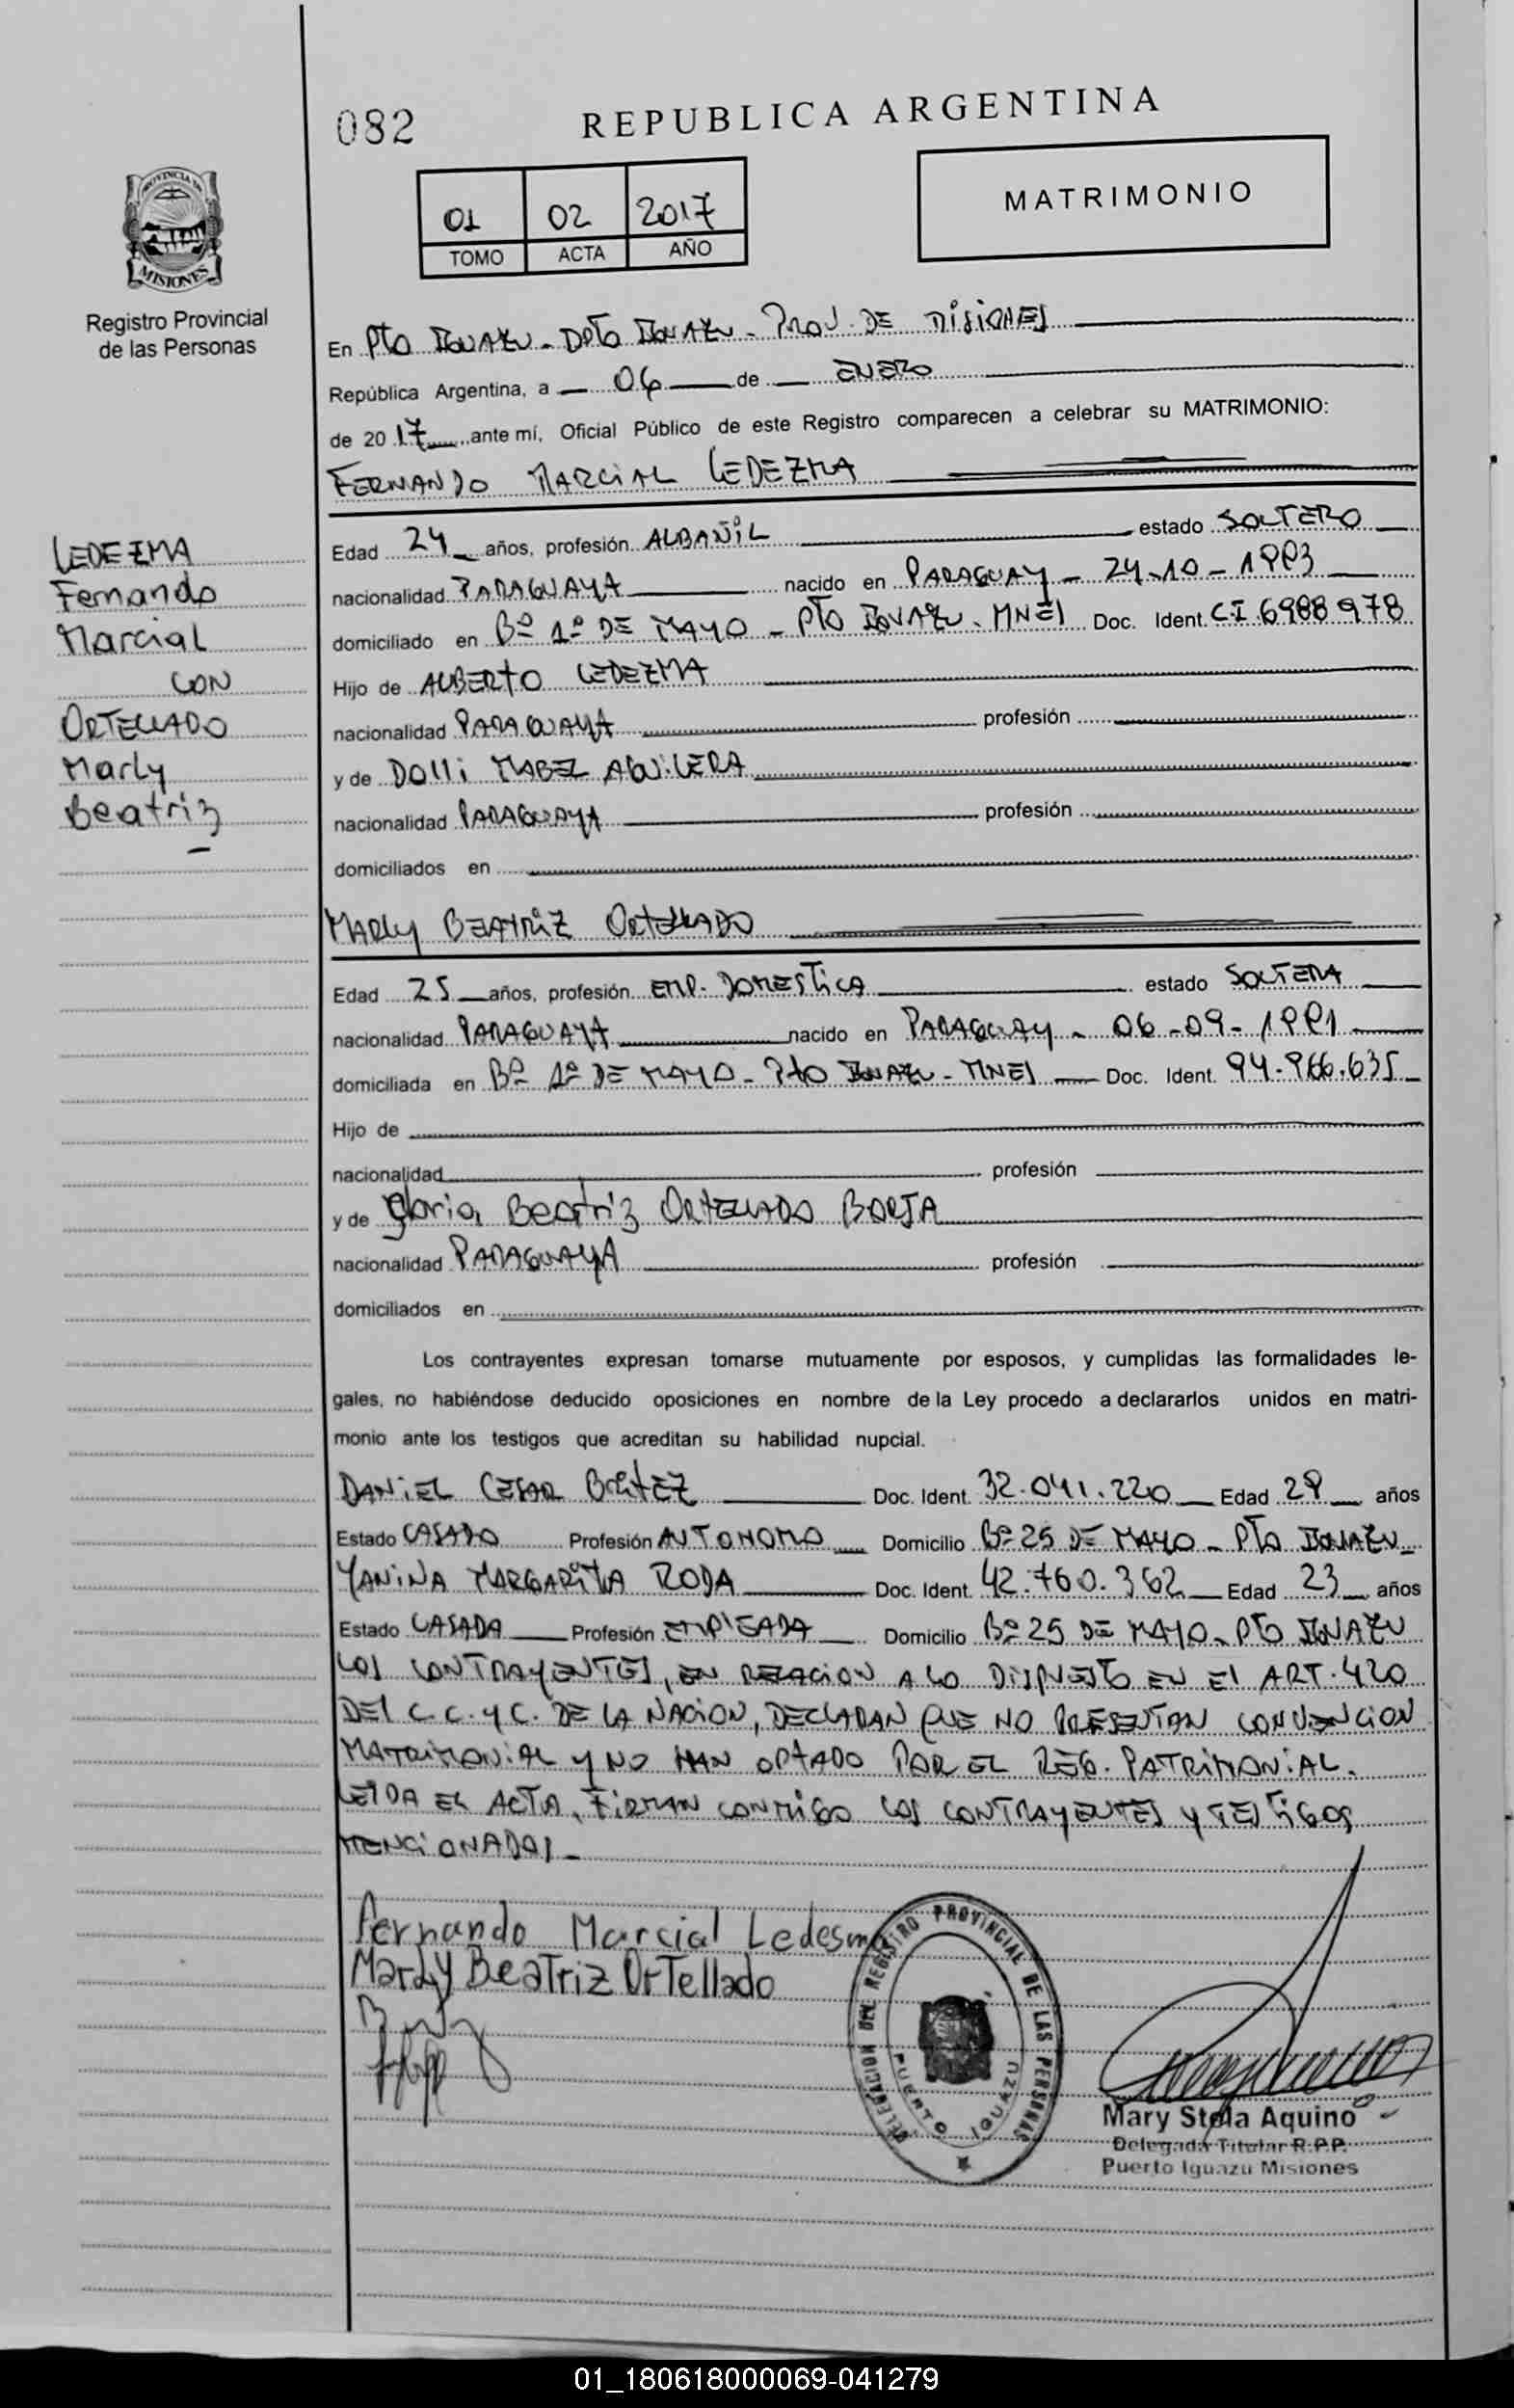 082
REPUBLICA ARGENTINA
01 02 2017
TOMO ACTA AÑO
MATRIMONIO
PROVINCIA DE
MISIONES
Registro Provincial
de las Personas
En Pto IGUAZU - DPTO IGUAZU - PROV. DE MISIONES
República Argentina, a 06 de ENERO
de 2017 ante mí, Oficial Público de este Registro comparecen a celebrar su MATRIMONIO:
FERNANDO MARCIAL LEDEZMA
LEDEZMA
Fernando
Marcial
CON
ORTELLADO
Marly
Beatriz
Edad 24 años, profesión ALBAÑIL estado SOLTERO
nacionalidad PARAGUAYA nacido en PARAGUAY - 24-10-1993
domiciliado en Bº 1º DE MAYO - PTO IGUAZU - MNES Doc. Ident. CI 6988978
Hijo de ALBERTO LEDEZMA
nacionalidad PARAGUAYA profesión
y de DOLLI MABEL AGUILERA
nacionalidad PARAGUAYA profesión
domiciliados en
MARLY BEATRIZ ORTELLADO
Edad 25 años, profesión EMP. DOMESTICA estado SOLTERA
nacionalidad PARAGUAYA nacido en PARAGUAY - 06-09-1991
domiciliada en Bº 1º DE MAYO - Pto IGUAZU - MNES Doc. Ident. 94.966.635
Hijo de
nacionalidad profesión
y de Gloria Beatriz ORTELLADO BORJA
nacionalidad PARAGUAYA profesión
domiciliados en
Los contrayentes expresan tomarse mutuamente por esposos, y cumplidas las formalidades le-
gales, no habiéndose deducido oposiciones en nombre de la Ley procedo a declararlos unidos en matri-
monio ante los testigos que acreditan su habilidad nupcial.
DANIEL CESAR BENITEZ Doc. Ident. 32.041.220 Edad 29 años
Estado CASADO Profesión AUTONOMO Domicilio Bº 25 DE MAYO - PTO IGUAZU -
YANINA MARGARITA RODA Doc. Ident. 42.760.362 Edad 23 años
Estado CASADA Profesión EMPLEADA Domicilio Bº 25 DE MAYO - PTO IGUAZU
LOS CONTRAYENTES, EN RELACION A LO DISPUESTO EN EL ART. 420
DEL C.C. Y C. DE LA NACION, DECLARAN QUE NO PRESENTAN CONVENCION
MATRIMONIAL Y NO HAN OPTADO POR EL REG. PATRIMONIAL.
LEIDA EL ACTA, FIRMAN CONMIGO LOS CONTRAYENTES Y TESTIGOS
MENCIONADOS -
Fernando Marcial Ledesma
Marly Beatriz Ortellado
DELEGACION DEL REGISTRO PROVINCIAL DE LAS PERSONAS
PUERTO IGUAZU
Mary Stela Aquino
Delegada Titular R.P.P.
Puerto Iguazu Misiones
01_180618000069-041279